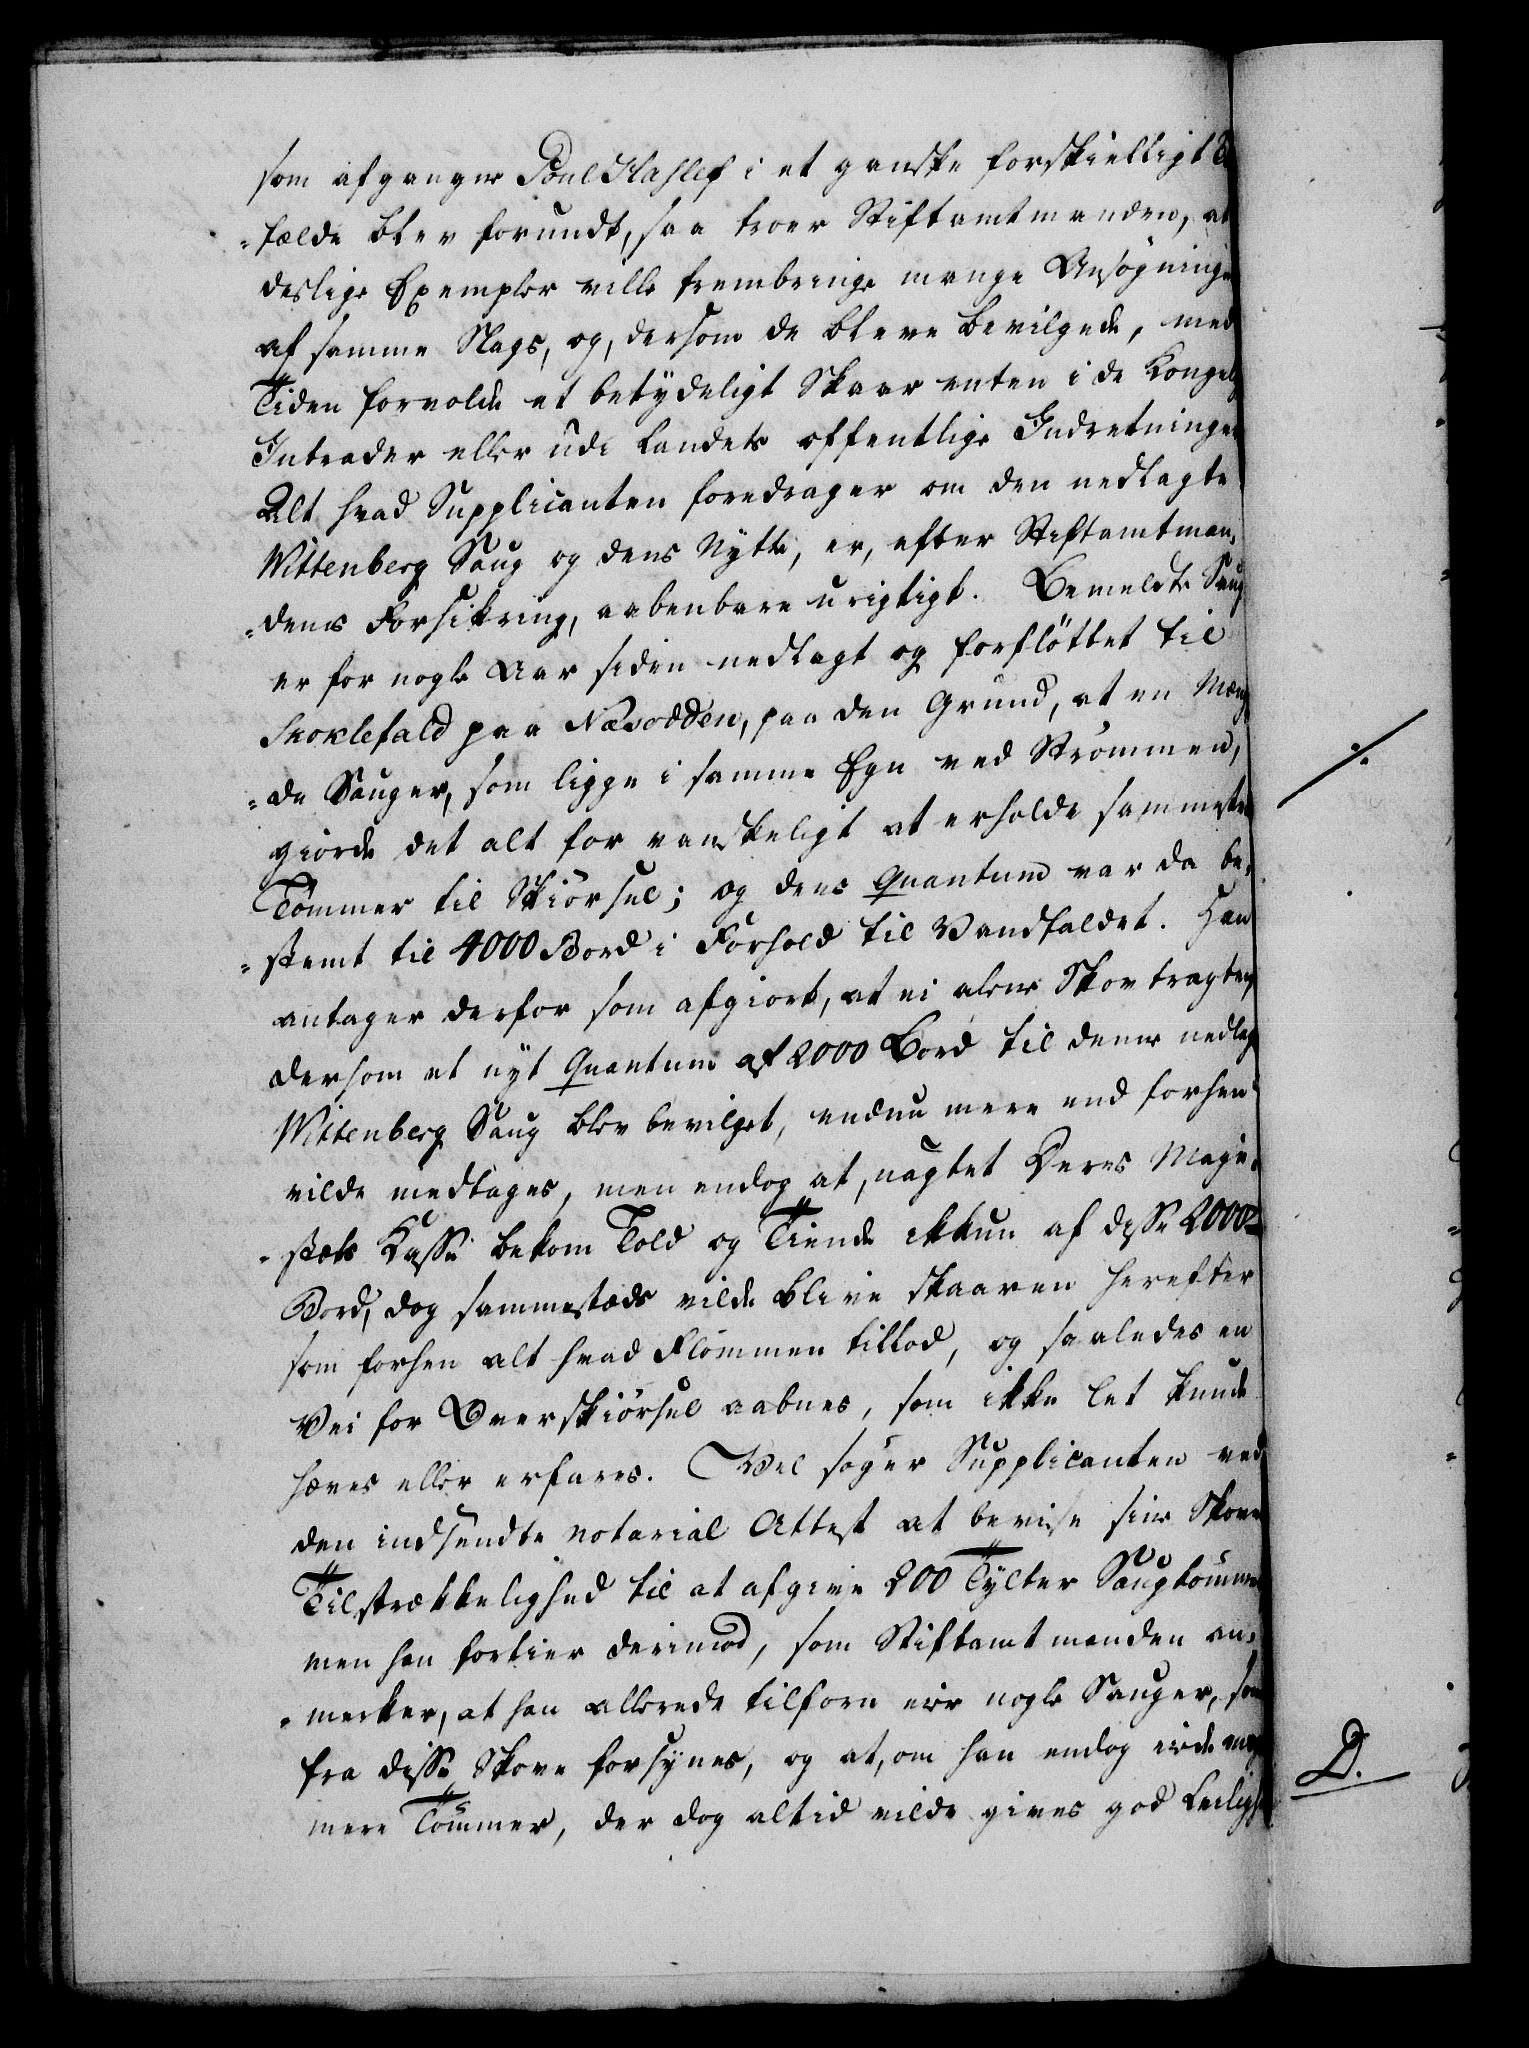 som afgangne Poul Hasles i et ganske forskielligt
=fælde blev forundt, saa troer Stiftamtmanden, at
deslige Exempler ville frembringe mange Ansøgninge
af samme Slags, og, dersom de bleve bevilgede, med
Tiden forvolde et betydeligt Skaar enten i de Kongel
Intrader eller udi Landets offentlige Indretninge
Alt hvad Supplicanten foredrager om den nedlagte
Wittenberg Saug og dens Nytte, er, efter Stiftamtman,
=dens Forsikring, aabenbare urigtigt. Bemeldte Saug
er for nogle Aar siden nedlagt og forfløttet til
Skoklefald paa Næsodden, paa den Grund, at en Mæng
=de Sauger, som ligge i samme Egn ved Strømmen,
giorde det alt for vanskeligt at erholde sammested
Tømmer til Skiørsel; og dens Quantum var da be,
=stemt til 4000 Bord i Forhold til Vandfaldet. Han
antager derfor som afgiort, at ei alene Skovtragten
dersom et nyt Quantum af 2000 Bord til denne nedlag
Wittenberg Saug blev bevilget, endnu mere end forhen
vilde medtages, men endog at, uagtet Deres Maje=
=stæts Kasse bekom Told og Tiende ikkun af disse 2000
Bord, dog sammestæds vilde blive skaaren herefter
som forhen alt hvad Flommen tillod, og saaledes en
Vei for Overskiørsel aabnes, som ikke let kunde
hæves eller erfares. Vel søger Supplicanten ved
den indsendte notarial Attest at bevise sine Skove
Tilstrækkelighed til at afgive 200 Tylter Saugtømmer
men han fortier derimod, som Stiftamtmanden an=
=merker, at han allerede tilforn eier nogle Sauger, som
fra disse Skove forsynes, og at, om han endog eiede meget
mere Tømmer, der dog altid vilde gives god Leiligh
D.